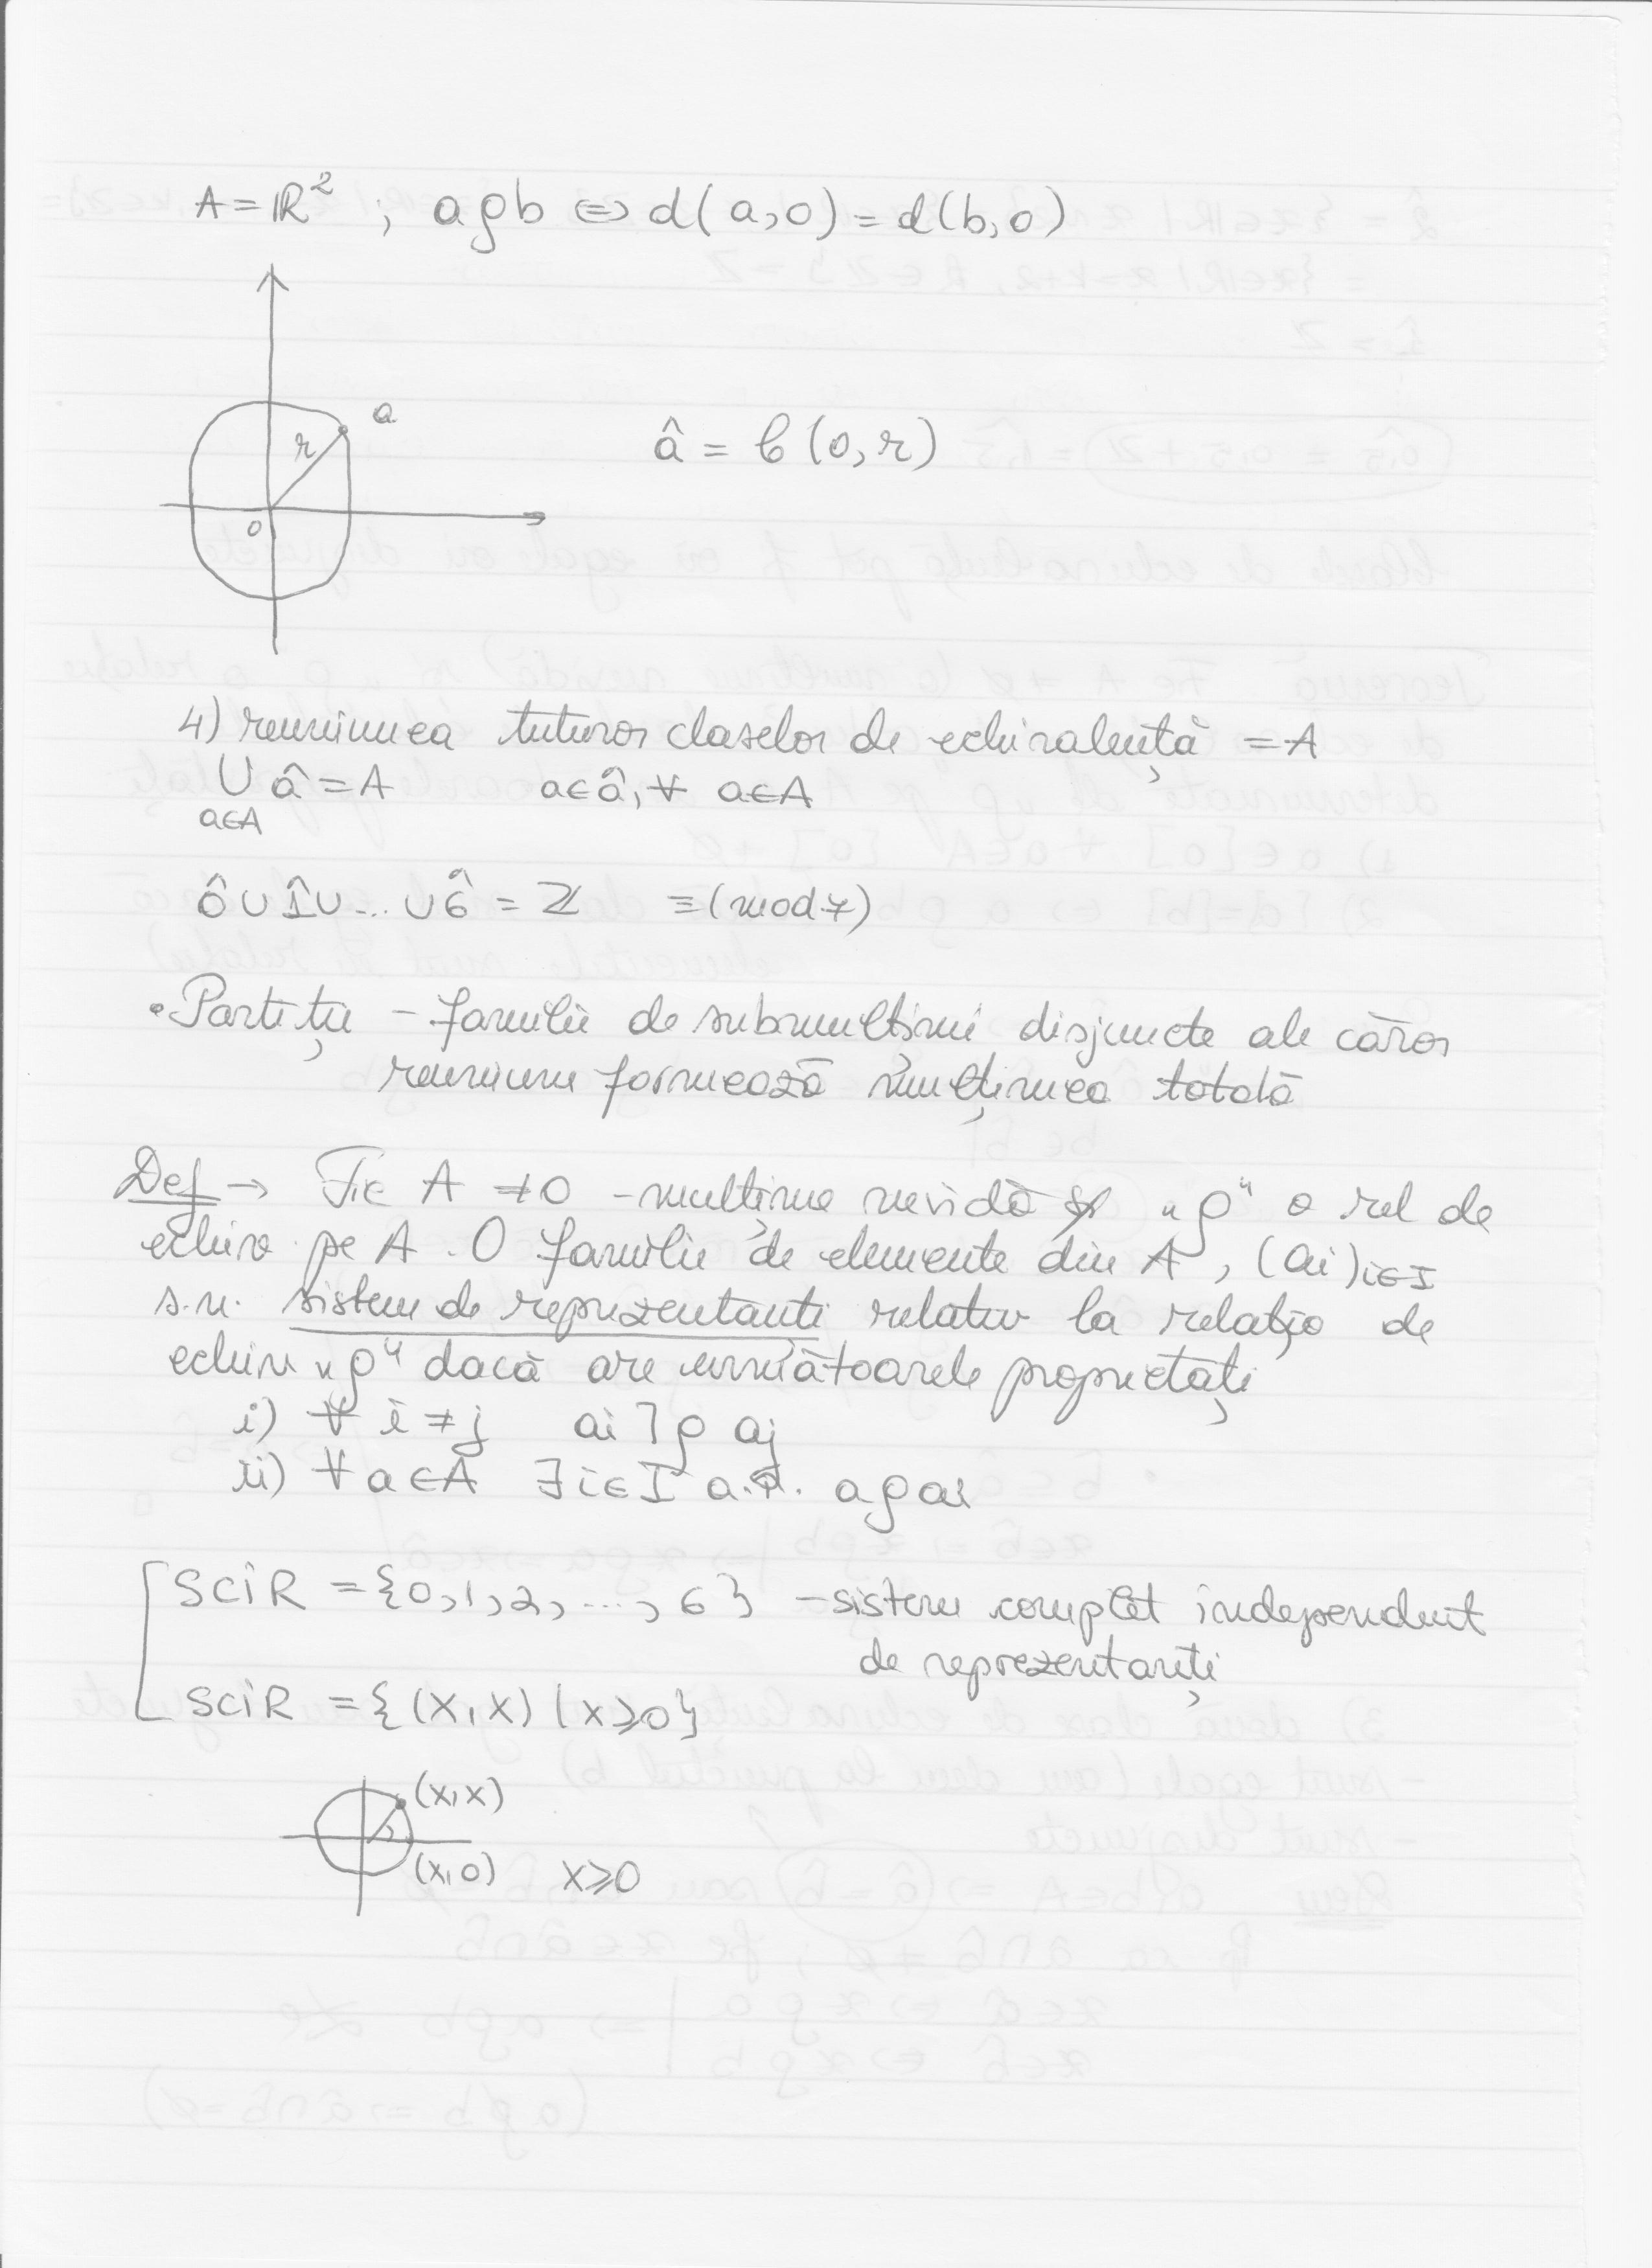 A = ℝ² ; aρb ⇔ d(a,0) = d(b,0)
a
r
0
â = C(0,r)
4) reuniunea tuturor claselor de echivalență = A
∪ â = A a∈â, ∀ a∈A
a∈A
0̂ ∪ 1̂ ∪ ... ∪ 6̂ = ℤ ≡(mod 7)
• Partiție – familie de submulțimi disjuncte ale căror
reuniune formează mulțimea totală
Def → Fie A ≠ 0 – mulțime nevidă și „ρ" o rel de
echiv pe A. O familie de elemente din A, (ai)i∈I
s.n. sistem de reprezentanti relativ la relația de
echiv „ρ" dacă are următoarele proprietăți
i) ∀ i ≠ j ai ⌉ρ aj
ii) ∀ a∈A ∃ i∈I a.î. a ρ ai
SCiR = {0,1,2,...,6} – sistem complet independent
de reprezentanți
SCiR = {(x,x) | x≥0}
(x,x)
(x,0) x≥0